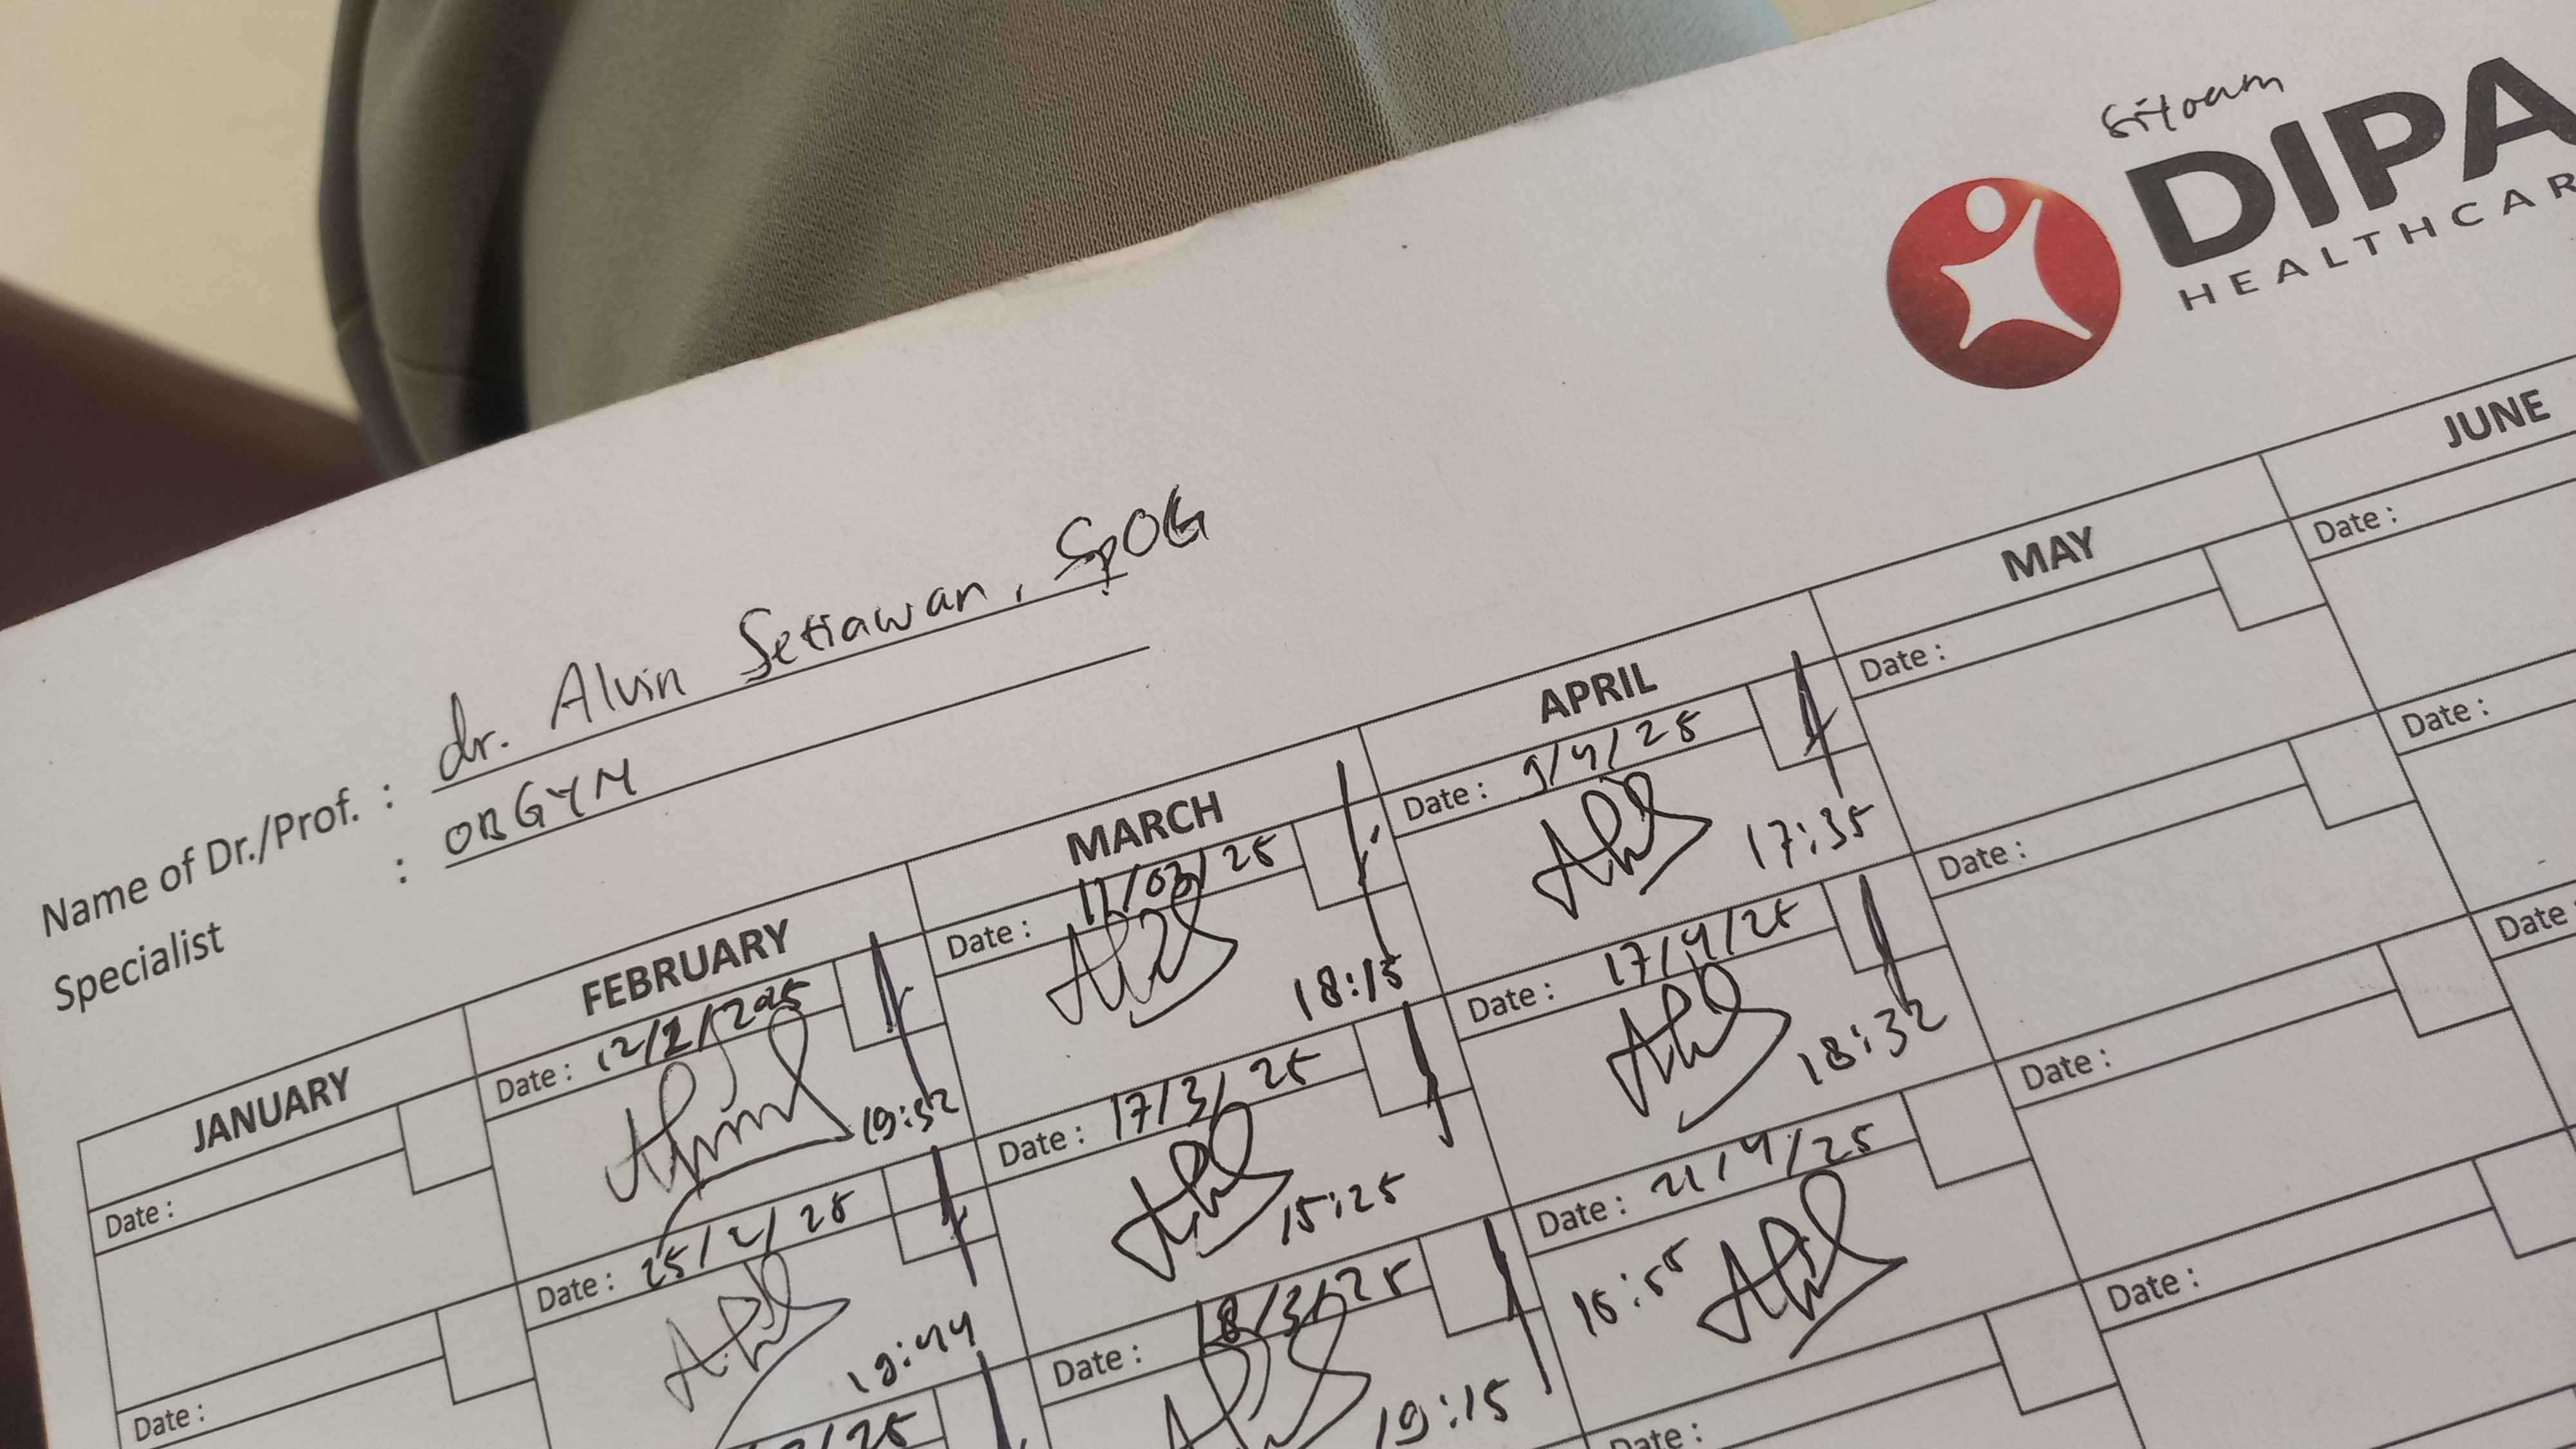 DIPA
HEALTHCAR
Name of Dr./Prof. : dr. Alvin Setiawan, SpOG
Specialist : OBGYN
JANUARY FEBRUARY MARCH APRIL MAY JUNE
Date :
Date : 12/2/2025
19:52
Date : 11/03/25
18:15
Date : 9/4/25
17:35
Date :
Date :
Date :
Date : 25/2/25
19:44
Date : 17/3/25
15:25
Date : 17/4/25
18:32
Date :
Date :
Date : 18/3/25
19:15
Date : 21/4/25
Date :
Date
Date :
Date :